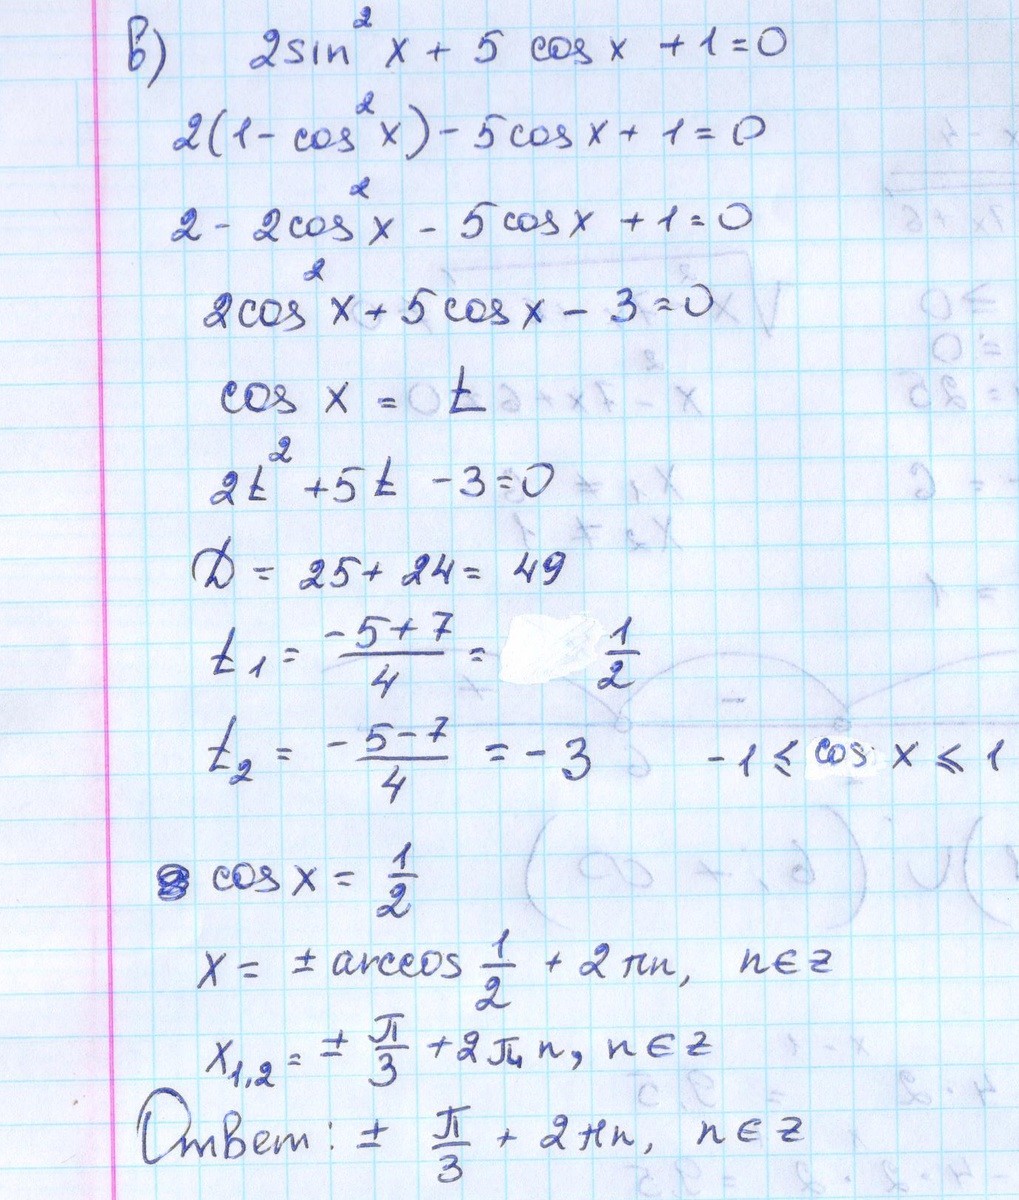 в) 2sin² x + 5 cos x + 1 = 0
2(1 - cos² x) - 5cos x + 1 = 0
2 - 2cos² x - 5cos x + 1 = 0
2cos² x + 5cos x - 3 = 0
cos x = t
2t² + 5t - 3 = 0
D = 25 + 24 = 49
t₁ = (-5+7)/4 = 1/2
t₂ = (-5-7)/4 = -3   -1 ≤ cos x ≤ 1
cos x = 1/2
x = ± arccos 1/2 + 2πn, n ∈ z
x₁,₂ = ± π/3 + 2πn, n ∈ z
Ответ: ± π/3 + 2πn, n ∈ z